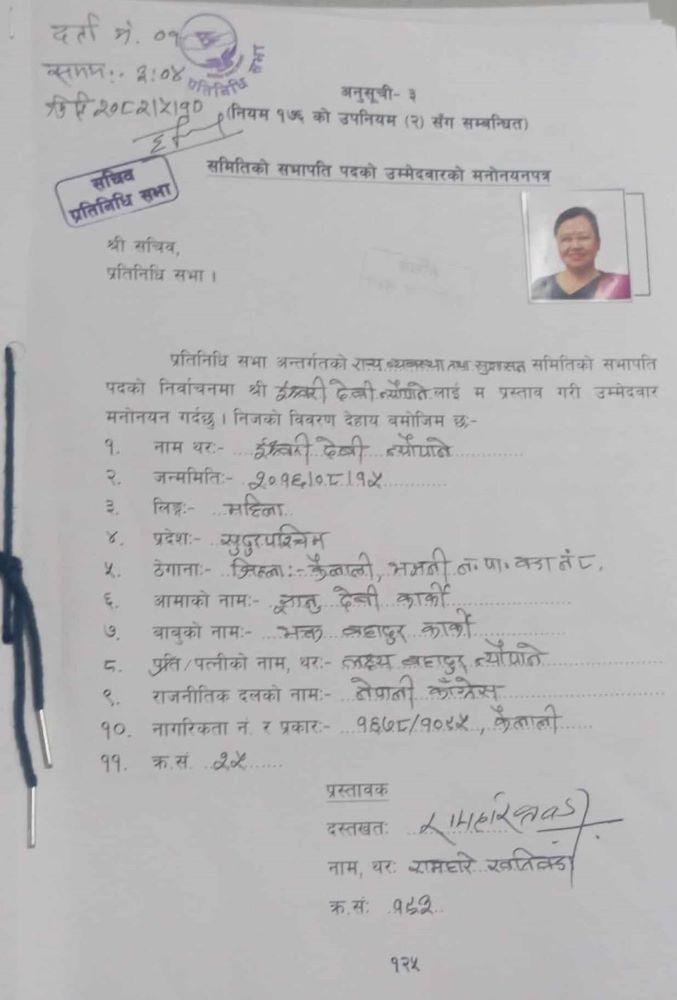 दर्ता नं. ०१
समय:- २:०४
मिति २०८२।४।१०
प्रतिनिधि सभा
सचिव
प्रतिनिधि सभा
अनुसूची- ३
(नियम १७६ को उपनियम (२) सँग सम्बन्धित)
समितिको सभापति पदको उम्मेदवारको मनोनयनपत्र
श्री सचिव,
प्रतिनिधि सभा ।
प्रतिनिधि सभा अन्तर्गतको राज्य व्यवस्था तथा सुशासन समितिको सभापति
पदको निर्वाचनमा श्री ईश्वरी देवी न्यौपाने लाई म प्रस्ताव गरी उम्मेदवार
मनोनयन गर्दछु । निजको विवरण देहाय बमोजिम छ:-
१. नाम थर:- ईश्वरी देवी न्यौपाने
२. जन्ममिति:- २०१६।०८।१५
३. लिङ्ग:- महिला
४. प्रदेश:- सुदुरपश्चिम
५. ठेगाना:- जिल्ला:- कैलाली, भजनी न.पा. वडा नं ८,
६. आमाको नाम:- देवी कार्की
७. बाबुको नाम:- भक्त बहादुर कार्की
८. पति/पत्नीको नाम, थर:- लक्ष्य बहादुर न्यौपाने
९. राजनीतिक दलको नाम:- नेपाली काँग्रेस
१०. नागरिकता नं. र प्रकार:- १६७८/१०९५, कैलाली
११. क्र.सं. २५
प्रस्तावक
दस्तखतः
नाम, थरः रामहरि खतिवडा
क्र.सं: १९३
१२५